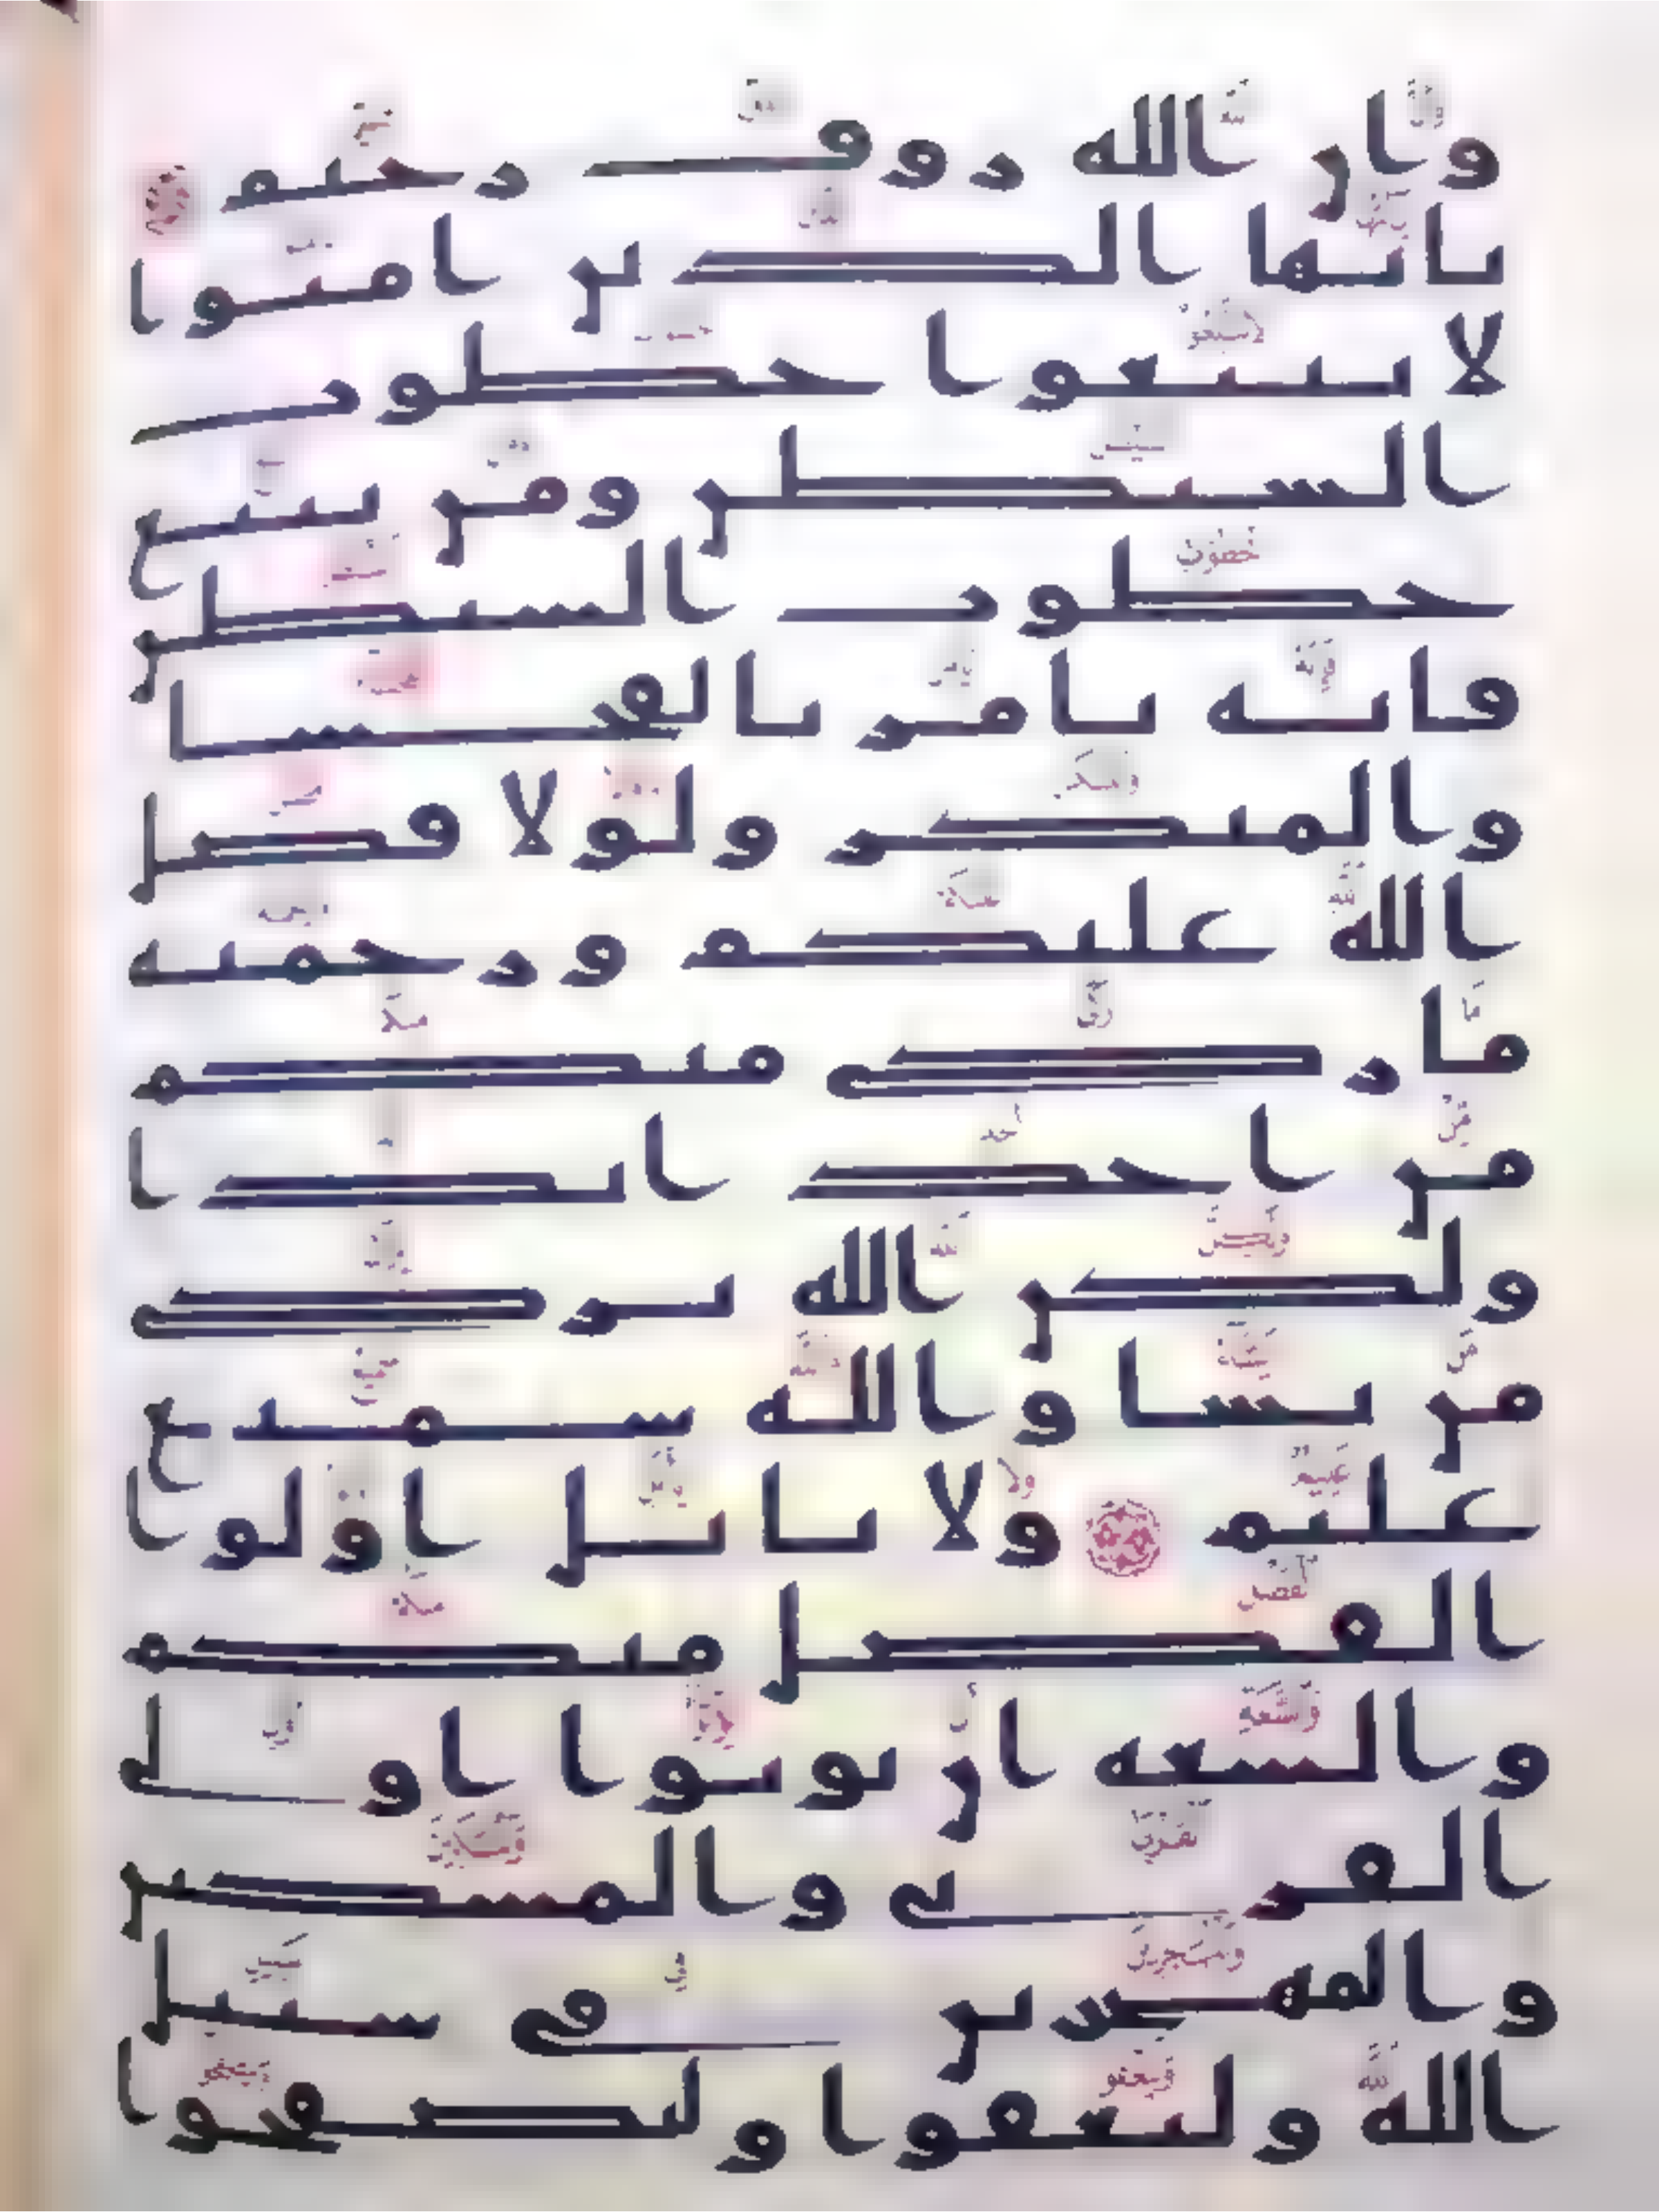 وان الله روف رحيم
يايها الذين امنوا
لا تتبعوا خطوت
الشيطن ومن يتبع
خطوت الشيطن
فانه يامر بالفحشا
والمنكر ولولا فضل
الله عليكم ورحمته
ما زكى منكم
من احد ابدا
ولكن الله يزكى
من يشا والله سميع
عليم ولا ياتل اولوا
الفضل منكم
والسعه ان يوتوا اولى
القربى والمسكين
والمهجرين فى سبيل
الله وليعفوا وليصفحوا